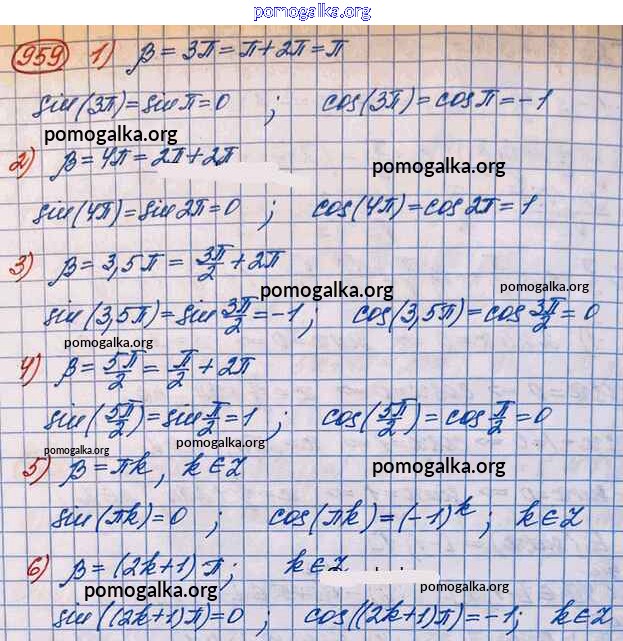 pomogalka.org
959 1) β = 3π = π + 2π = π
sin(3π) = sin π = 0 ; cos(3π) = cos π = -1
pomogalka.org
2) β = 4π = 2π + 2π
pomogalka.org
sin(4π) = sin 2π = 0 ; cos(4π) = cos 2π = 1
3) β = 3,5π = 3π/2 + 2π
pomogalka.org pomogalka.org
sin(3,5π) = sin 3π/2 = -1 ; cos(3,5π) = cos 3π/2 = 0
pomogalka.org
4) β = 5π/2 = π/2 + 2π
pomogalka.org
sin(5π/2) = sin π/2 = 1 ; cos(5π/2) = cos π/2 = 0
pomogalka.org pomogalka.org
5) β = πk, k ∈ Z
pomogalka.org
sin(πk) = 0 ; cos(πk) = (-1)^k ; k ∈ Z
6) β = (2k+1)π ; k ∈ Z
pomogalka.org pomogalka.org
sin((2k+1)π) = 0 ; cos((2k+1)π) = -1 ; k ∈ Z